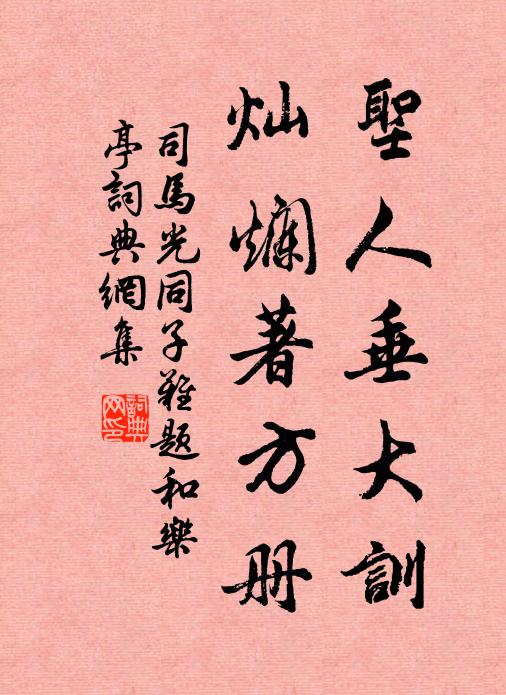 聖人垂大訓
灿爛著方册
司馬光同子難题和樂
亭詞典網集
詞典
网印